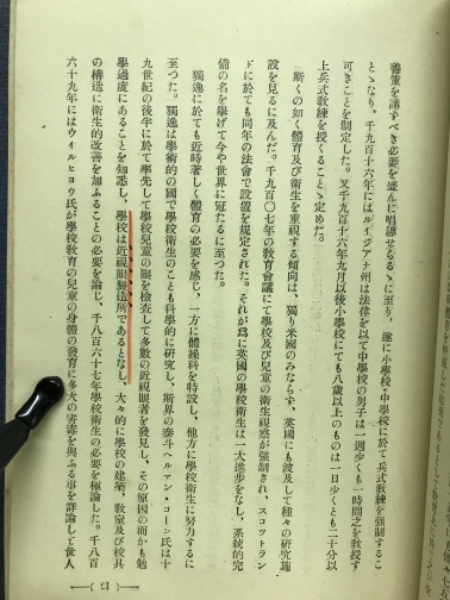 善策を講ずべき必要を盛んに唱導せらるゝに至り、遂に小學校・中學校に於て兵式教練を強制するこ
とゝなり、千九百十六年にはルイジアナ州は法律を以て中學校の男子は一週少くも一時間之を教授す
可きことを制定した。又千九百十六年九月以後小學校にても八歳以上のものは一日少くとも二十分以
上兵式教練を授くることゝ定めた。
斯くの如く體育及び衛生を重視する傾向は、獨り米國のみならず、英國にも波及して種々の研究施
設を見るに及んだ。千九百〇七年の教育會議にて學校及び兒童の衛生視察が強制され、スコツトラン
ドに於ても同年の法會で設置を規定された。それが爲に英國の學校衛生は一大進歩をなし、系統的完
備の名を擧げて今や世界に冠たるに至つた。
獨逸に於ても近時著しく體育の必要を感じ、一方に體操科を特設し、他方に學校衛生に努力するに
至つた。獨逸は學術的の國で學校衛生のことも科學的に研究し、斯界の泰斗ヘルマン・コーン氏は十
九世紀の後半に於て率先して學校兒童の眼を檢査して多數の近視眼者を發見し、その原因の而かも勉
學過度にあることを知悉し、學校は近視眼製造所であるとなし、大々的に學校の建築、教室及び校具
の構造に衛生的改善を加ふることの必要を論じ、千八百六十七年學校衛生の必要を極論した。千八百
六十九年にはウイルヒョウ氏が學校教育の兒童の身體の發育に多大の害毒を與ふる事を詳論して世人
―( 21 )―